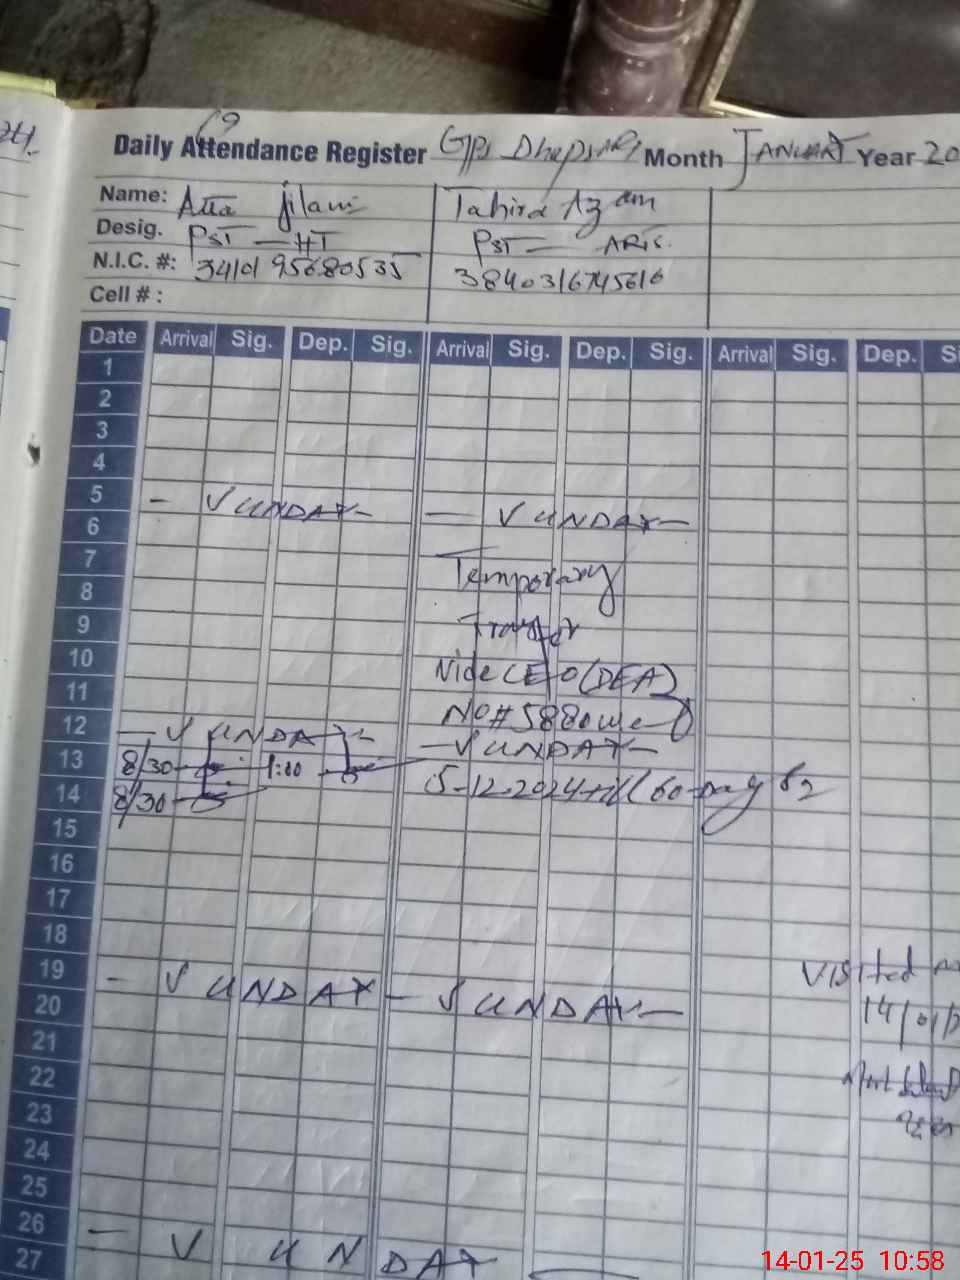 69
Daily Attendance Register GPS Month JANUARY Year 20
Name: Atta Jilani Tahira Azam
Desig. PST - HT PST - ARIS.
N.I.C. #: 3410195680535 3840316745616
Cell # :
Date Arrival Sig. Dep. Sig. Arrival Sig. Dep. Sig. Arrival Sig. Dep.
1
2
3
4
5 - SUNDAY - - SUNDAY -
6
7 Temporary
8
9 Transfer
10 Vide CEO (DEA)
11 NO # 5880
12 - SUNDAY - - SUNDAY -
13 8/30 1:00
14 8/30 5-12-2024 till 60
15
16
17
18
19 - SUNDAY - SUNDAY - Visited
20 14/01/2
21
22
23
24
25
26 - SUNDAY -
27
14-01-25 10:58